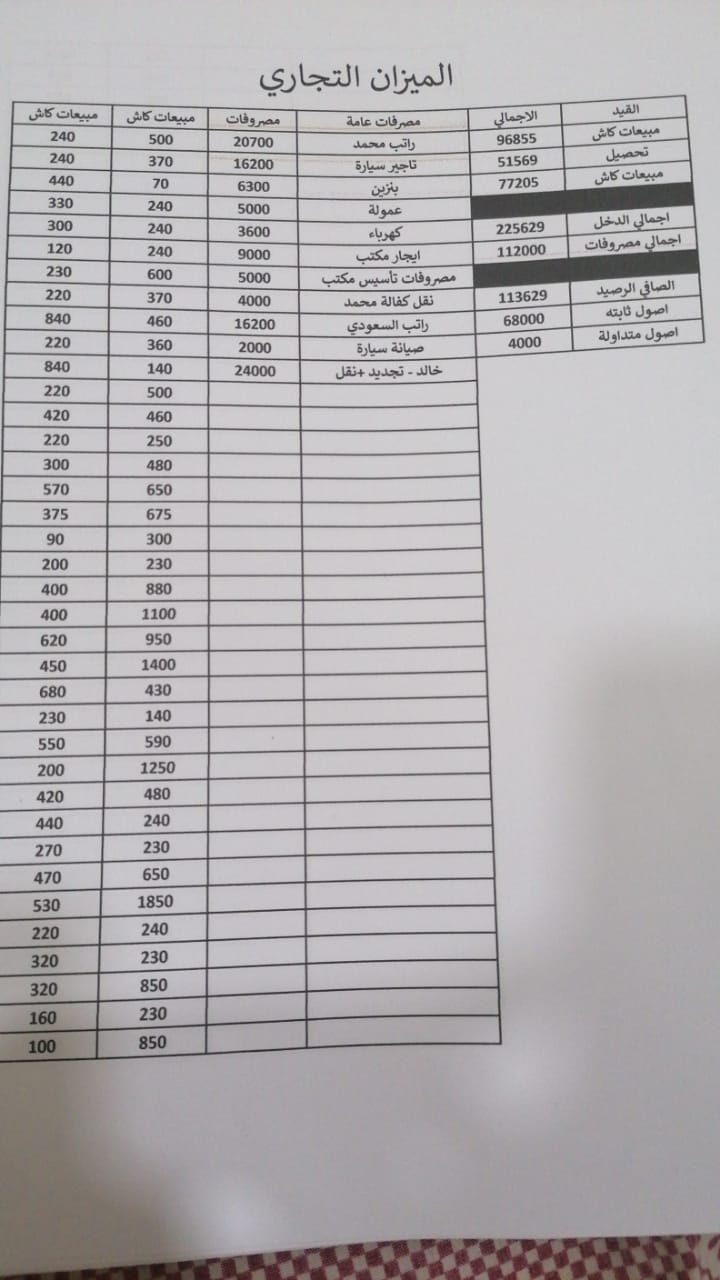 الميزان التجاري
القيد الاجمالي مصرفات عامة مصروفات مبيعات كاش مبيعات كاش
مبيعات كاش 96855 راتب محمد 20700 500 240
تحصيل 51569 تاجير سيارة 16200 370 240
مبيعات كاش 77205 بنزين 6300 70 440
عمولة 5000 240 330
اجمالي الدخل 225629 كهرباء 3600 240 300
اجمالي مصروفات 112000 ايجار مكتب 9000 240 120
مصروفات تأسيس مكتب 5000 600 230
الصافي الرصيد 113629 نقل كفالة محمد 4000 370 220
اصول ثابته 68000 راتب السعودي 16200 460 840
اصول متداولة 4000 صيانة سيارة 2000 360 220
خالد - تجديد +نقل 24000 140 840
500 220
460 420
250 220
480 300
650 570
675 375
300 90
230 200
880 400
1100 400
950 620
1400 450
430 680
140 230
590 550
1250 200
480 420
240 440
230 270
650 470
1850 530
240 220
230 320
850 320
230 160
850 100